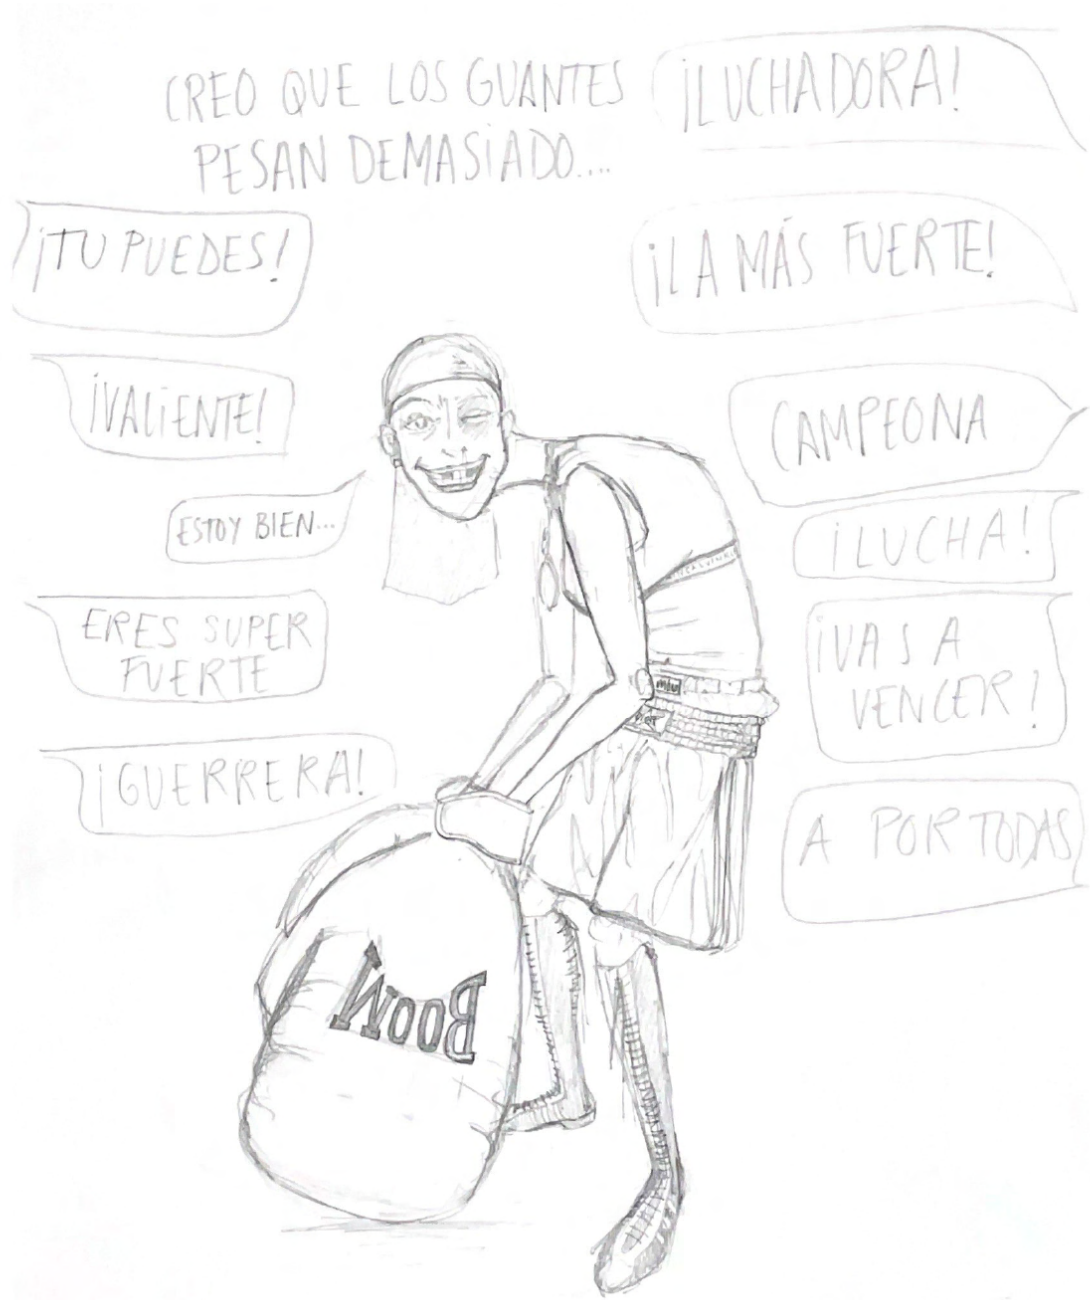 CREO QUE LOS GUANTES
PESAN DEMASIADO....
¡LUCHADORA!
¡TU PUEDES!
¡LA MÁS FUERTE!
¡VALIENTE!
CAMPEONA
ESTOY BIEN...
¡LUCHA!
ERES SUPER
FUERTE
¡VAS A
VENCER!
¡GUERRERA!
A POR TODAS
BOOM